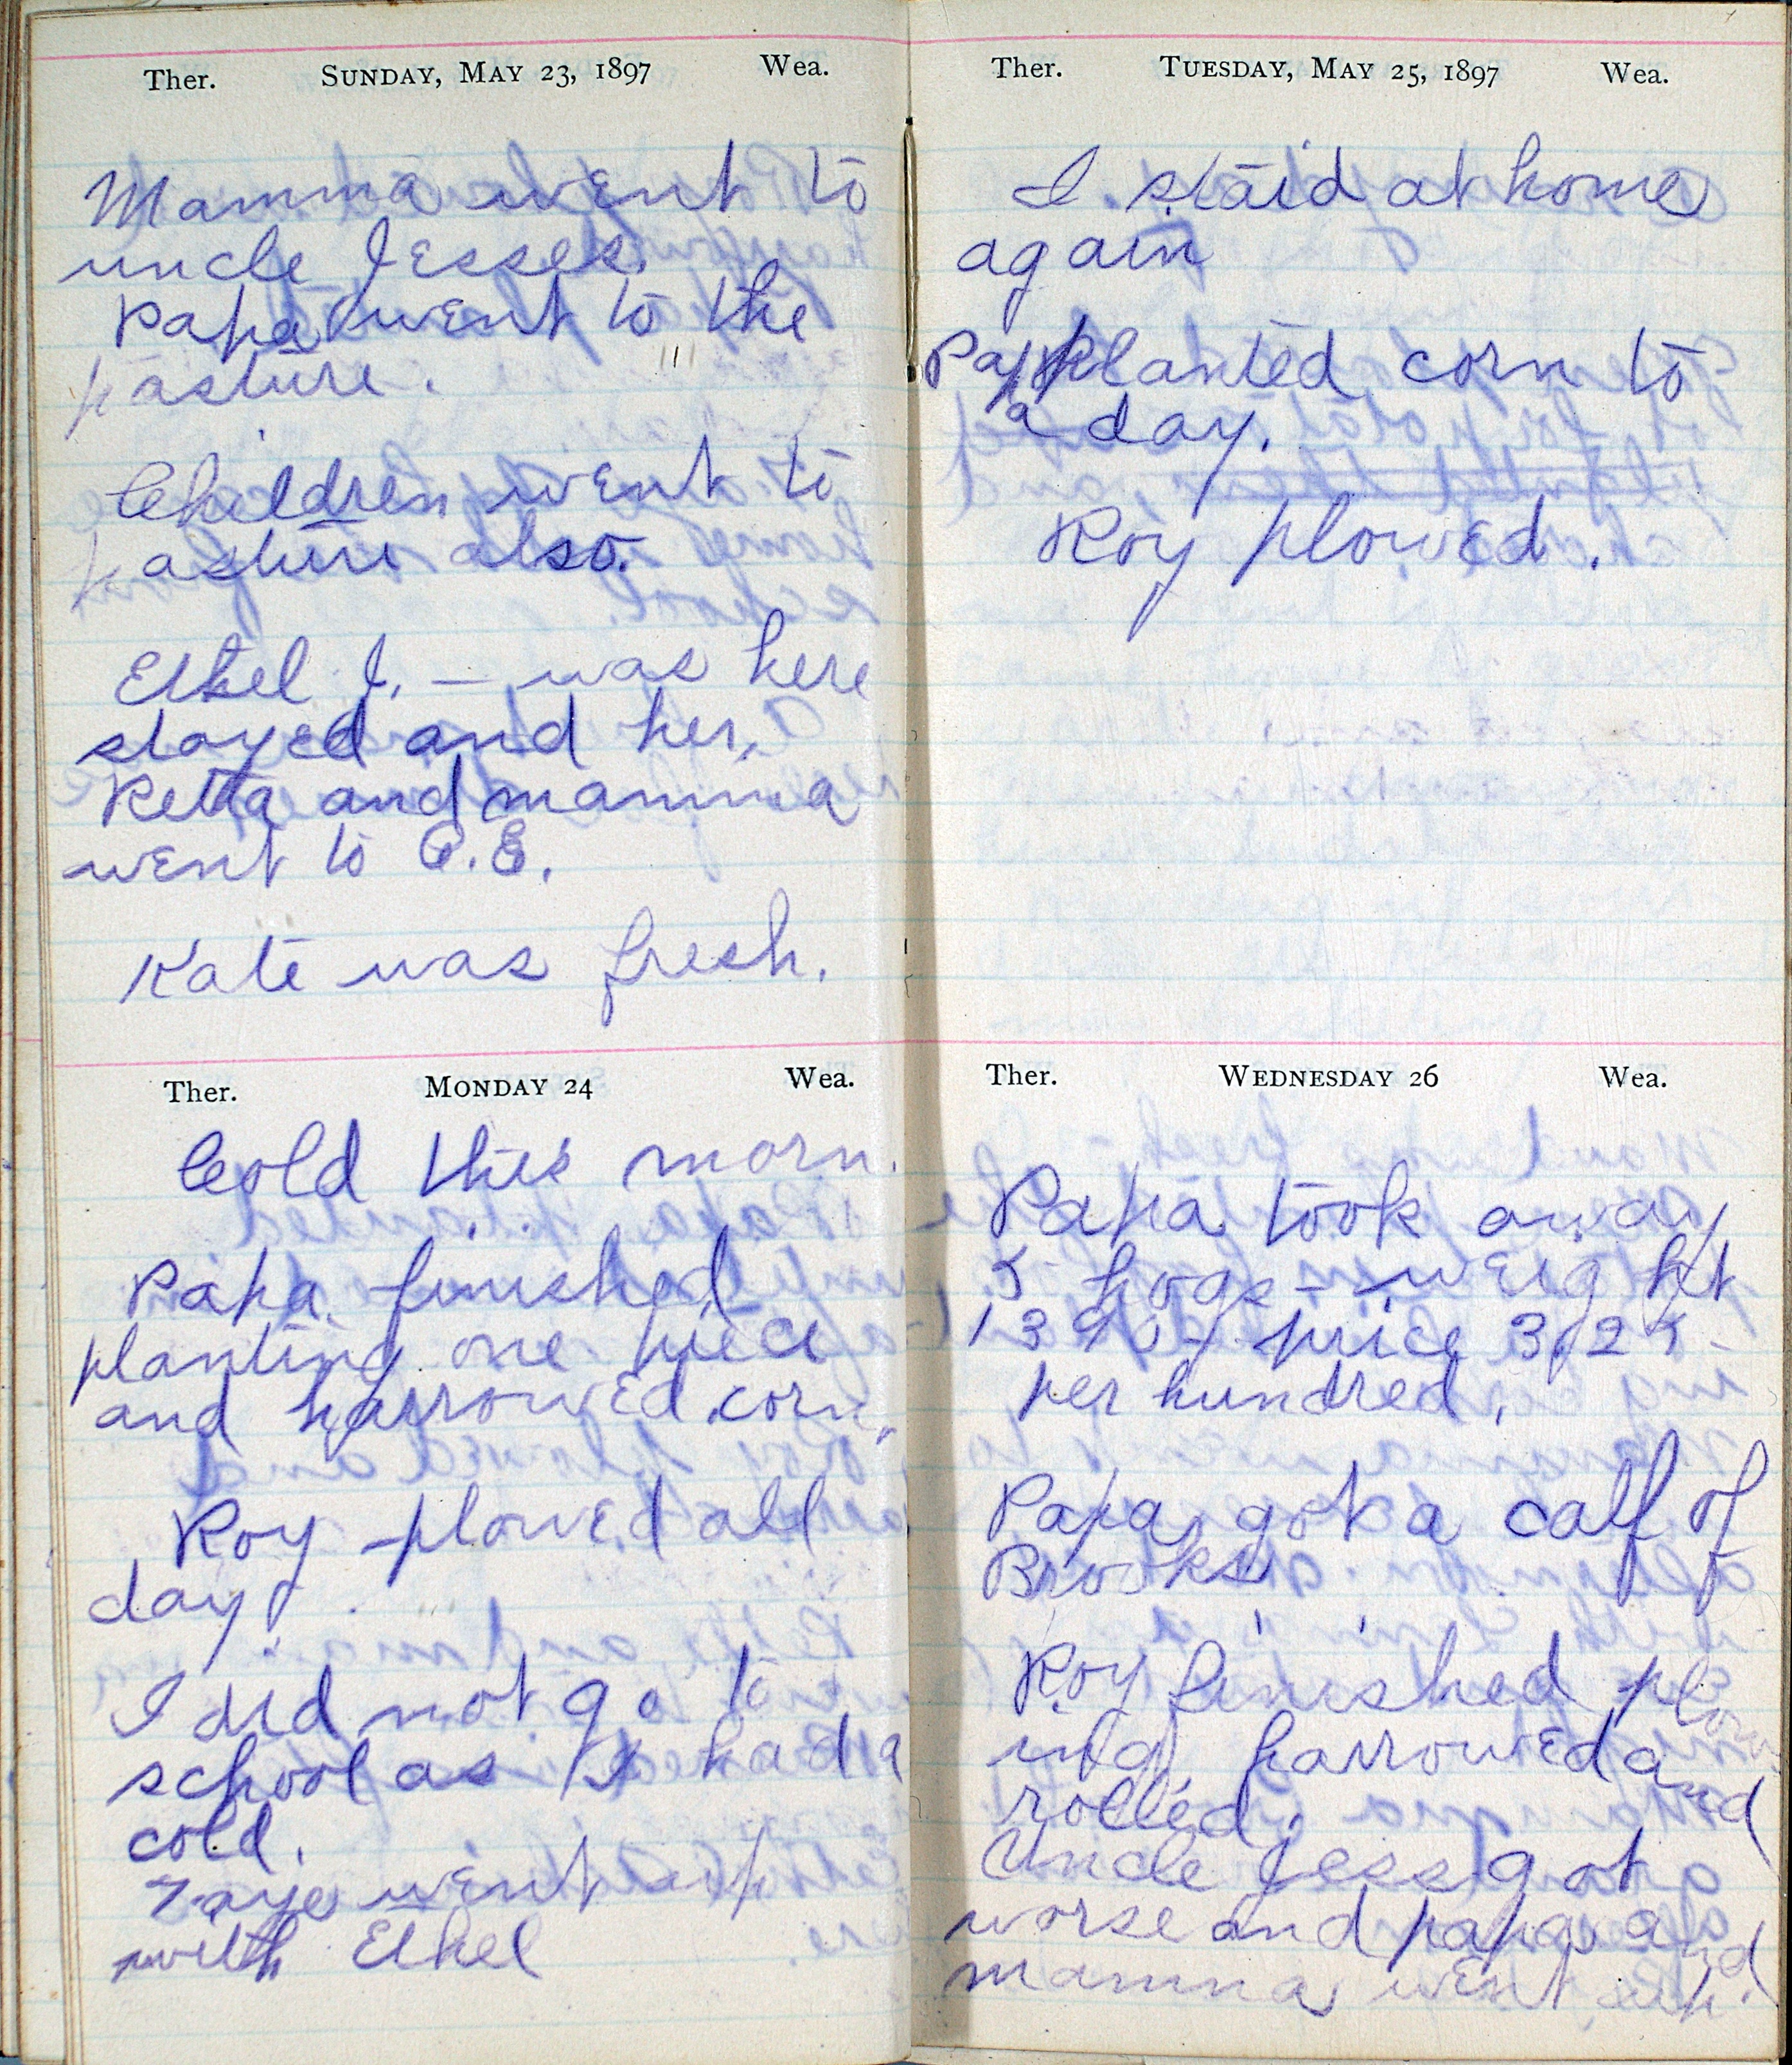 Ther. Sunday, May 23, 1897 Wea.
Mamma went to
uncle Jesses.
Papa went to the
pasture.
Children went to
pasture also.
Ethel J. — was here
stayed and her,
Retta and mamma
went to C.E.
Kate was fresh.
Ther. Monday 24 Wea.
Cold this morn.
Papa finished
planting one piece
and harrowed corn.
Roy plowed all
day.
I did not go to
school as I had a
cold.
Faye went up
with Ethel
Ther. Tuesday, May 25, 1897 Wea.
I staid at home
again
Papa planted corn to
day.
Roy plowed.
Ther. Wednesday 26 Wea.
Papa took away
5 hogs — weight
1390 — price 3.25
per hundred.
Papa got a calf of
Brooks.
Roy finished plow
ing, harrowed and
rolled.
Uncle Jess got
worse and papa and
mamma went up.